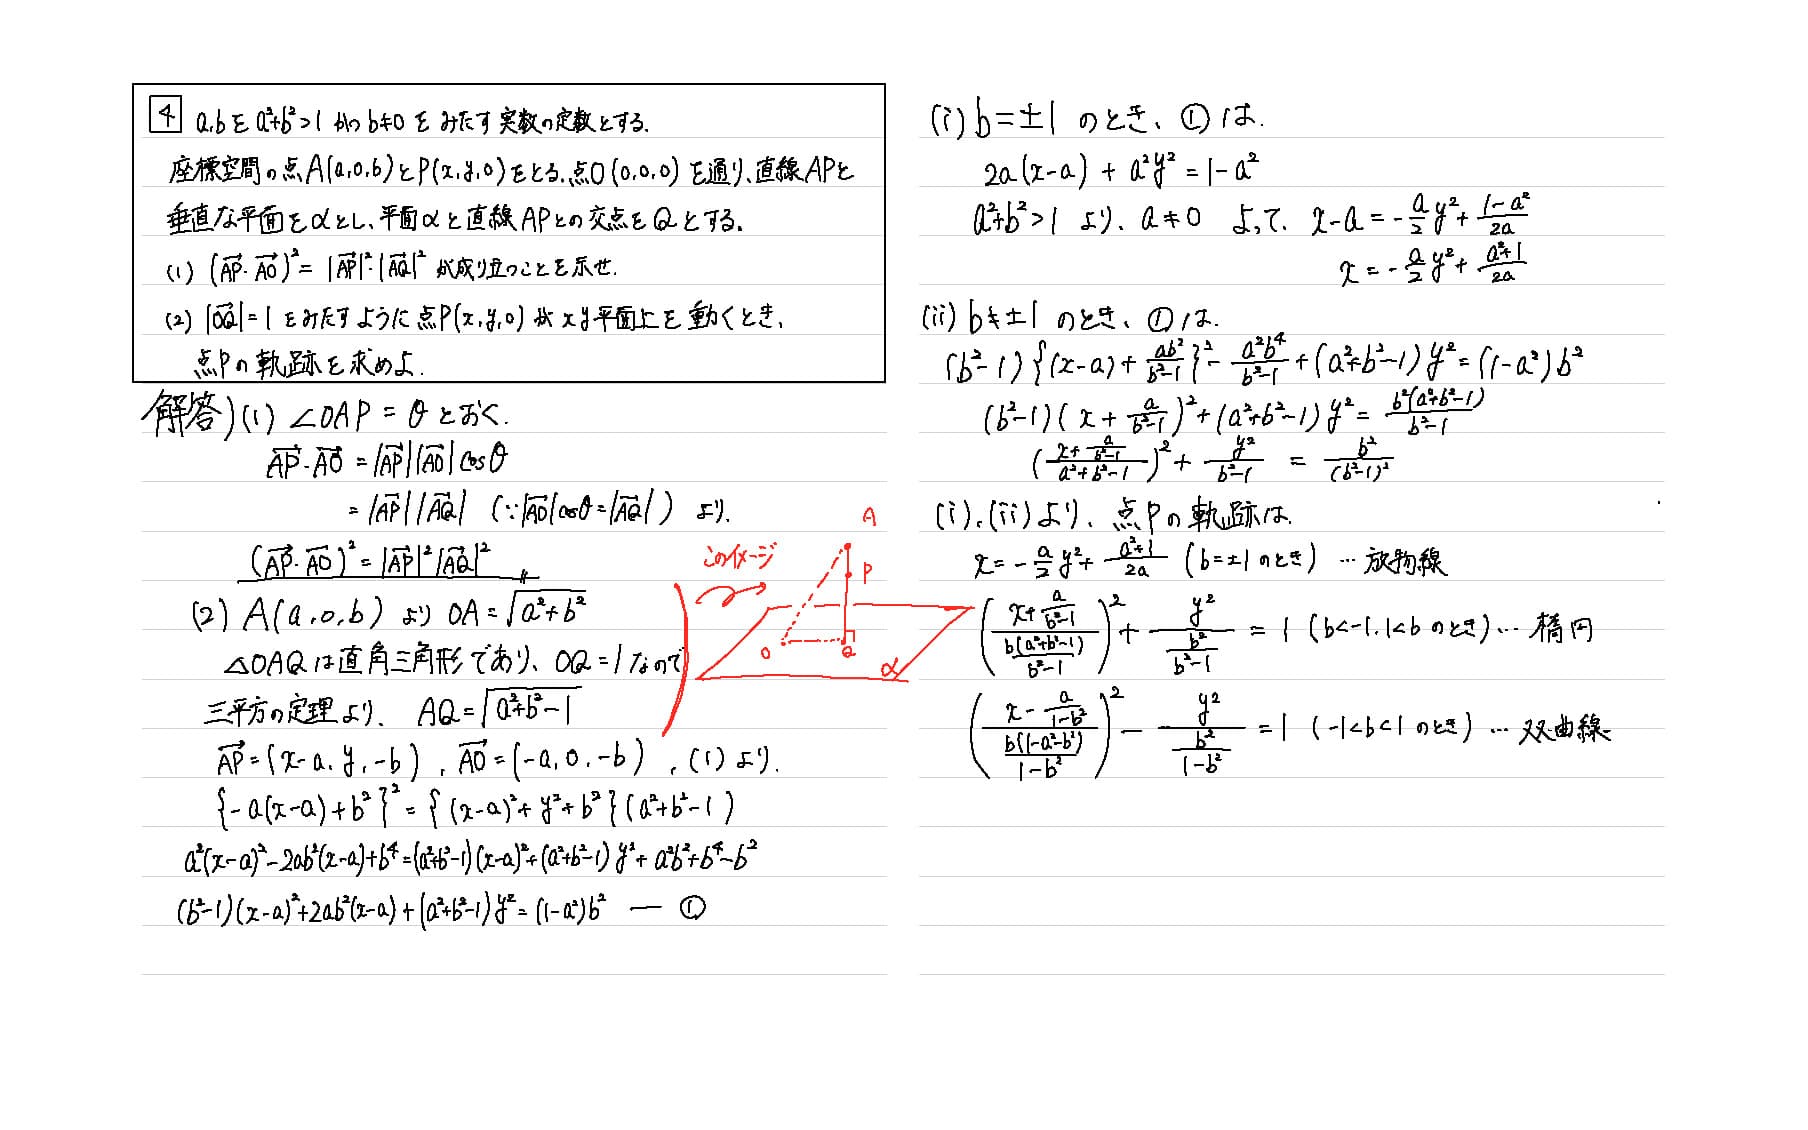 4 a,bをa²+b²>1かつb≠0をみたす実数の定数とする.
座標空間の点A(a,0,b)とP(x,y,0)をとる.点O(0,0,0)を通り、直線APと
垂直な平面をαとし、平面αと直線APとの交点をQとする.
(1) (AP→・AO→)²=|AP→|²・|AQ→|²が成り立つことを示せ.
(2) |OQ→|=1をみたすように点P(x,y,0)がxy平面上を動くとき、
点Pの軌跡を求めよ.
解答)(1) ∠OAP=θとおく.
AP→・AO→=|AP→||AO→|cosθ
=|AP→||AQ→| (∵|AO→|cosθ=|AQ→|) より、
(AP→・AO→)²=|AP→|²|AQ→|²〃
(2) A(a,0,b)より OA=√(a²+b²)
△OAQは直角三角形であり、OQ=1なので
三平方の定理より、 AQ=√(a²+b²-1)
AP→=(x-a,y,-b), AO→=(-a,0,-b), (1)より、
{-a(x-a)+b²}²={(x-a)²+y²+b²}(a²+b²-1)
a²(x-a)²-2ab²(x-a)+b⁴=(a²+b²-1)(x-a)²+(a²+b²-1)y²+a²b²+b⁴-b²
(b²-1)(x-a)²+2ab²(x-a)+(a²+b²-1)y²=(1-a²)b² — ①
このイメージ
A
P
O
Q
α
(i) b=±1 のとき、①は.
2a(x-a)+a²y²=1-a²
a²+b²>1 より、a≠0 よって、 x-a=-a/2 y²+(1-a²)/2a
x=-a/2 y²+(a²+1)/2a
(ii) b≠±1 のとき、①は.
(b²-1){(x-a)+ab²/(b²-1)}²-a²b⁴/(b²-1)+(a²+b²-1)y²=(1-a²)b²
(b²-1)(x+a/(b²-1))²+(a²+b²-1)y²=b²(a²+b²-1)/(b²-1)
((x+a/(b²-1))/(a²+b²-1))²+y²/(b²-1)=b²/(b²-1)²
(i),(ii)より、点Pの軌跡は.
x=-a/2 y²+(a²+1)/2a (b=±1のとき) … 放物線
((x+a/(b²-1))/(b(a²+b²-1)/(b²-1)))²+y²/(b²/(b²-1))=1 (b<-1,1<bのとき)… 楕円
((x-a/(1-b²))/(b(1-a²-b²)/(1-b²)))²-y²/(b²/(1-b²))=1 (-1<b<1のとき) … 双曲線